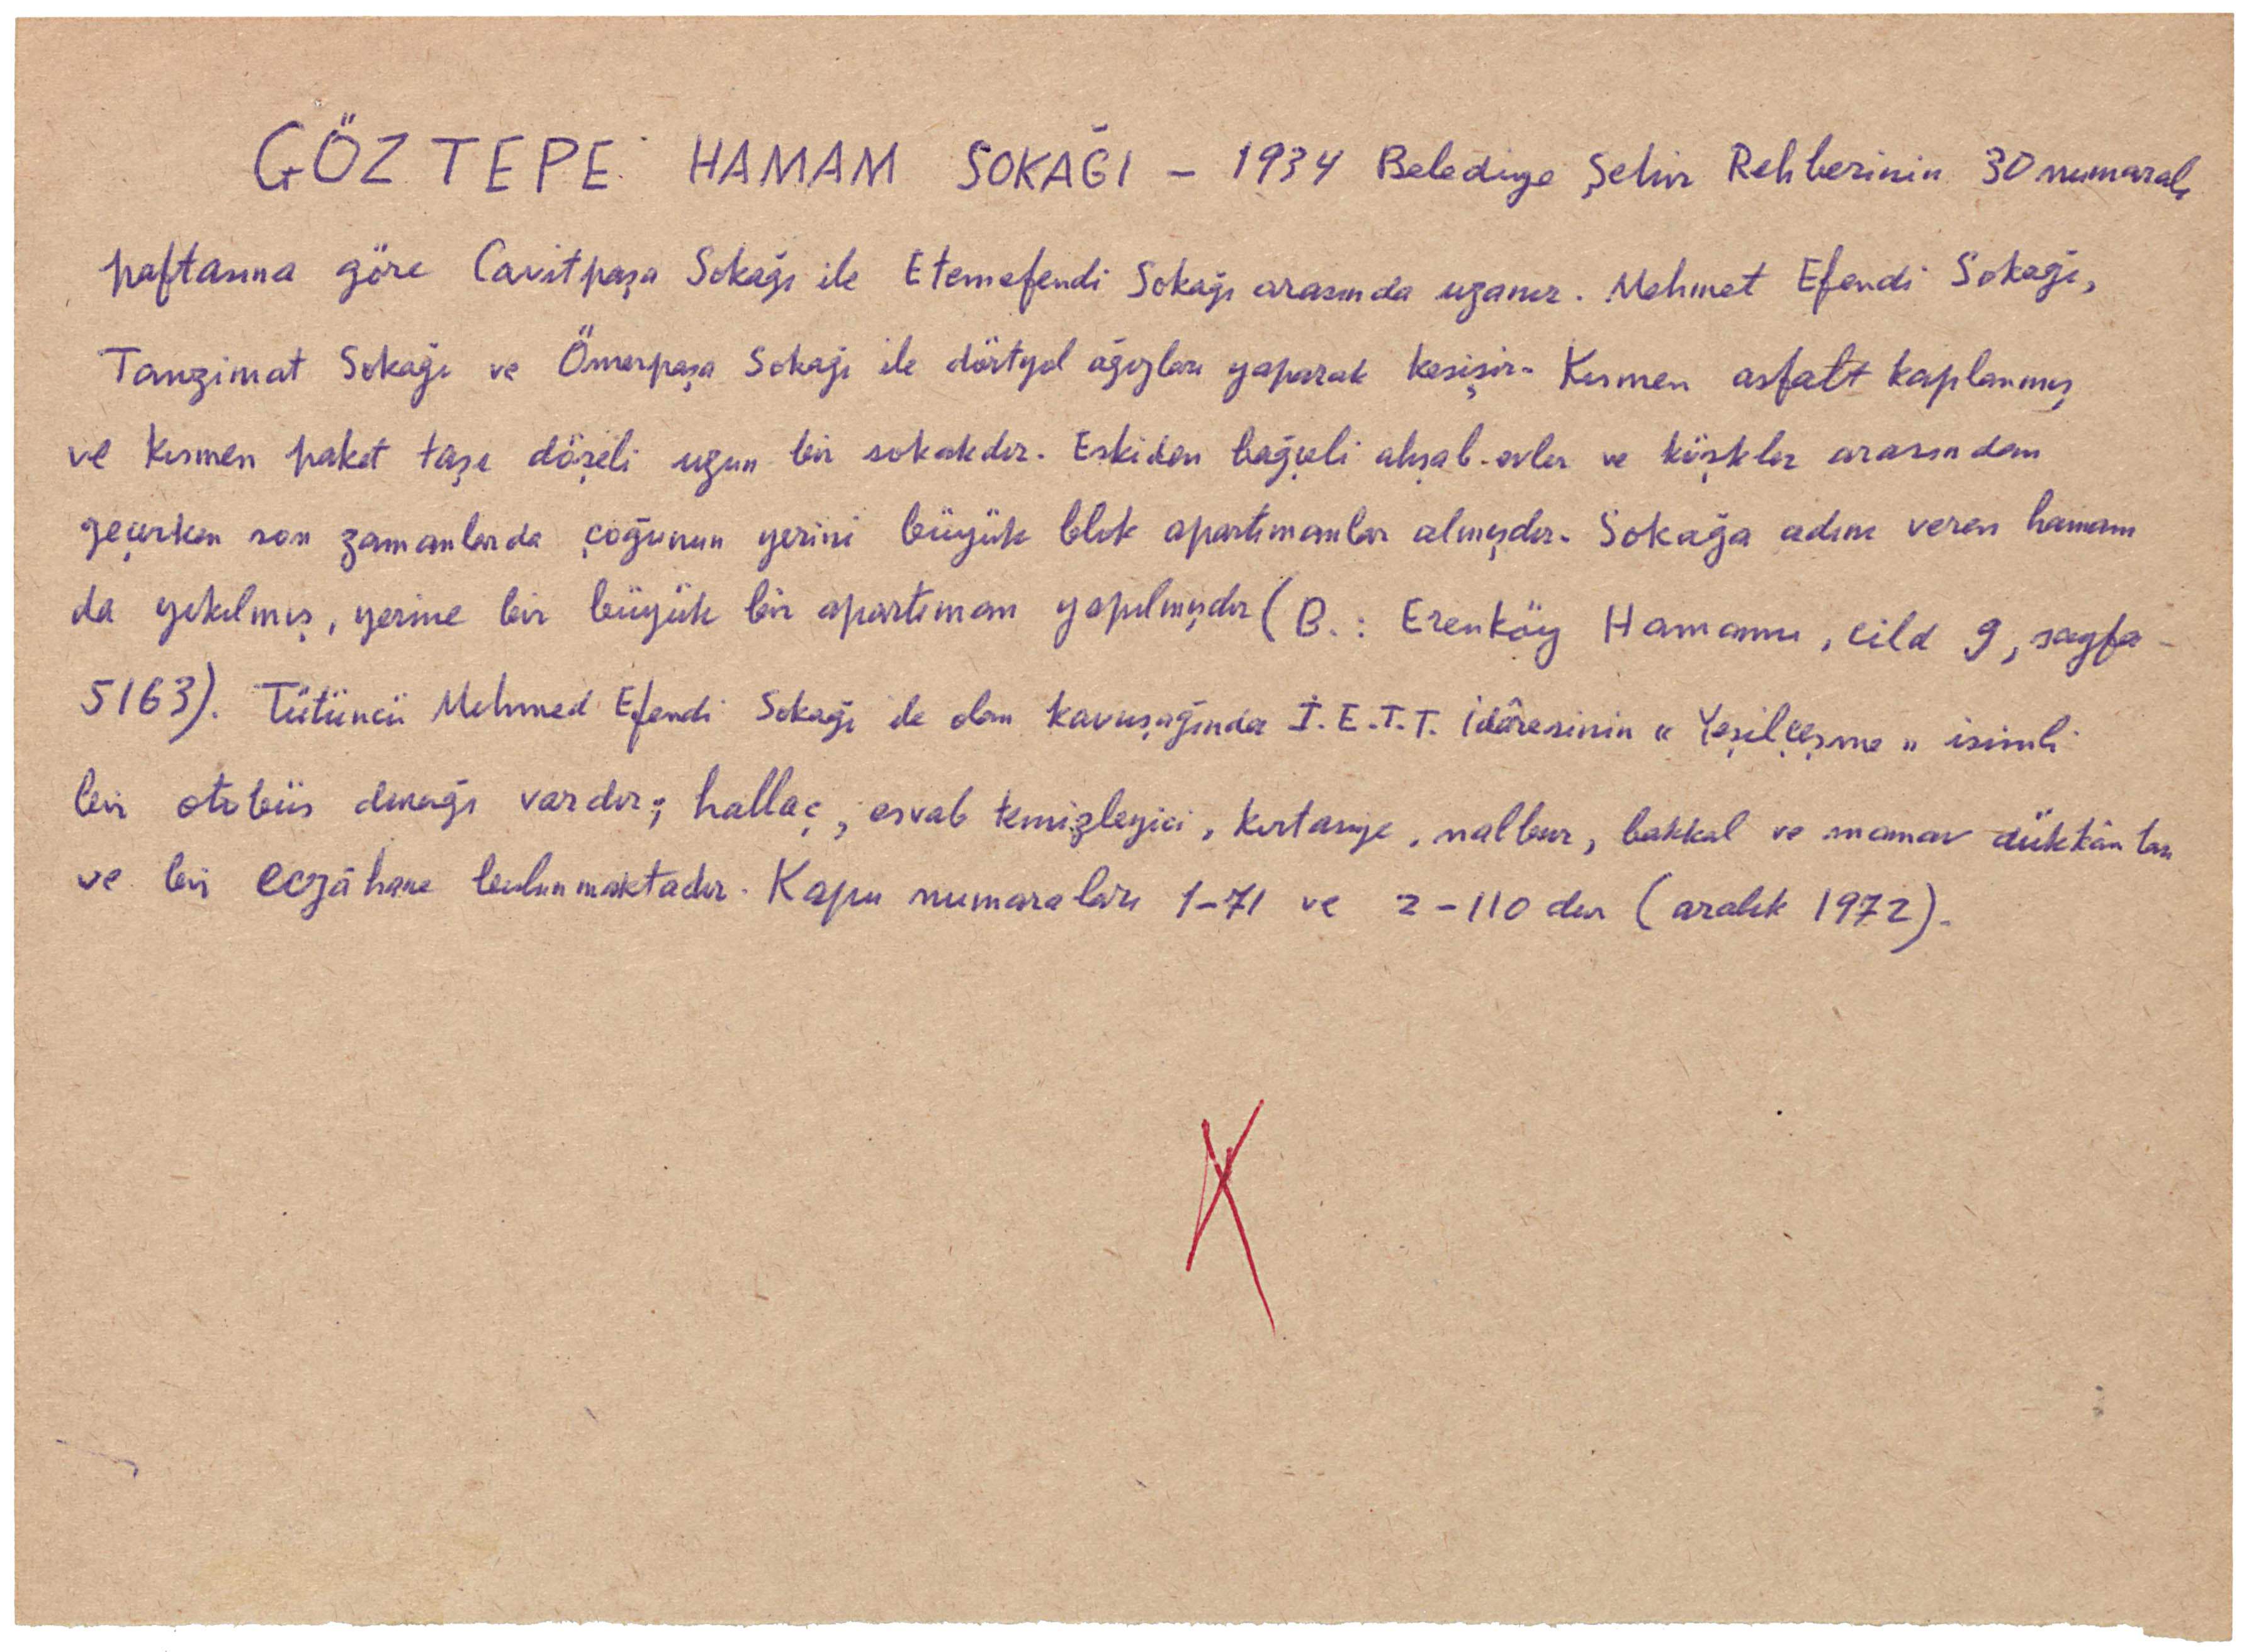 GÖZTEPE HAMAM SOKAĞI - 1934 Belediye Şehir Rehberinin 30 numaralı
paftasına göre Cavitpaşa Sokağı ile Etemefendi Sokağı arasında uzanır. Mehmet Efendi Sokağı,
Tanzimat Sokağı ve Ömerpaşa Sokağı ile dörtyol ağızları yaparak kesişir. Kısmen asfalt kaplanmış
ve kısmen paket taşı döşeli uzun bir sokakdır. Eskiden bağçeli ahşab evler ve köşkler arasından
geçerken son zamanlarda çoğunun yerini büyük blok apartımanlar almışdır. Sokağa adını veren hamam
da yıkılmış, yerine bir büyük bir apartıman yapılmışdır (B.: Erenköy Hamamı, cild 9, sayfa
5163). Tütüncü Mehmed Efendi Sokağı ile olan kavuşağında İ.E.T.T. İdâresinin « Yeşilçeşme » isimli
bir otobüs durağı vardır; hallaç, esvab temizleyici, kırtasiye, nalbur, bakkal ve manav dükkânları
ve bir eczâhane bulunmaktadır. Kapu numaraları 1-71 ve 2-110 dur (aralık 1972).